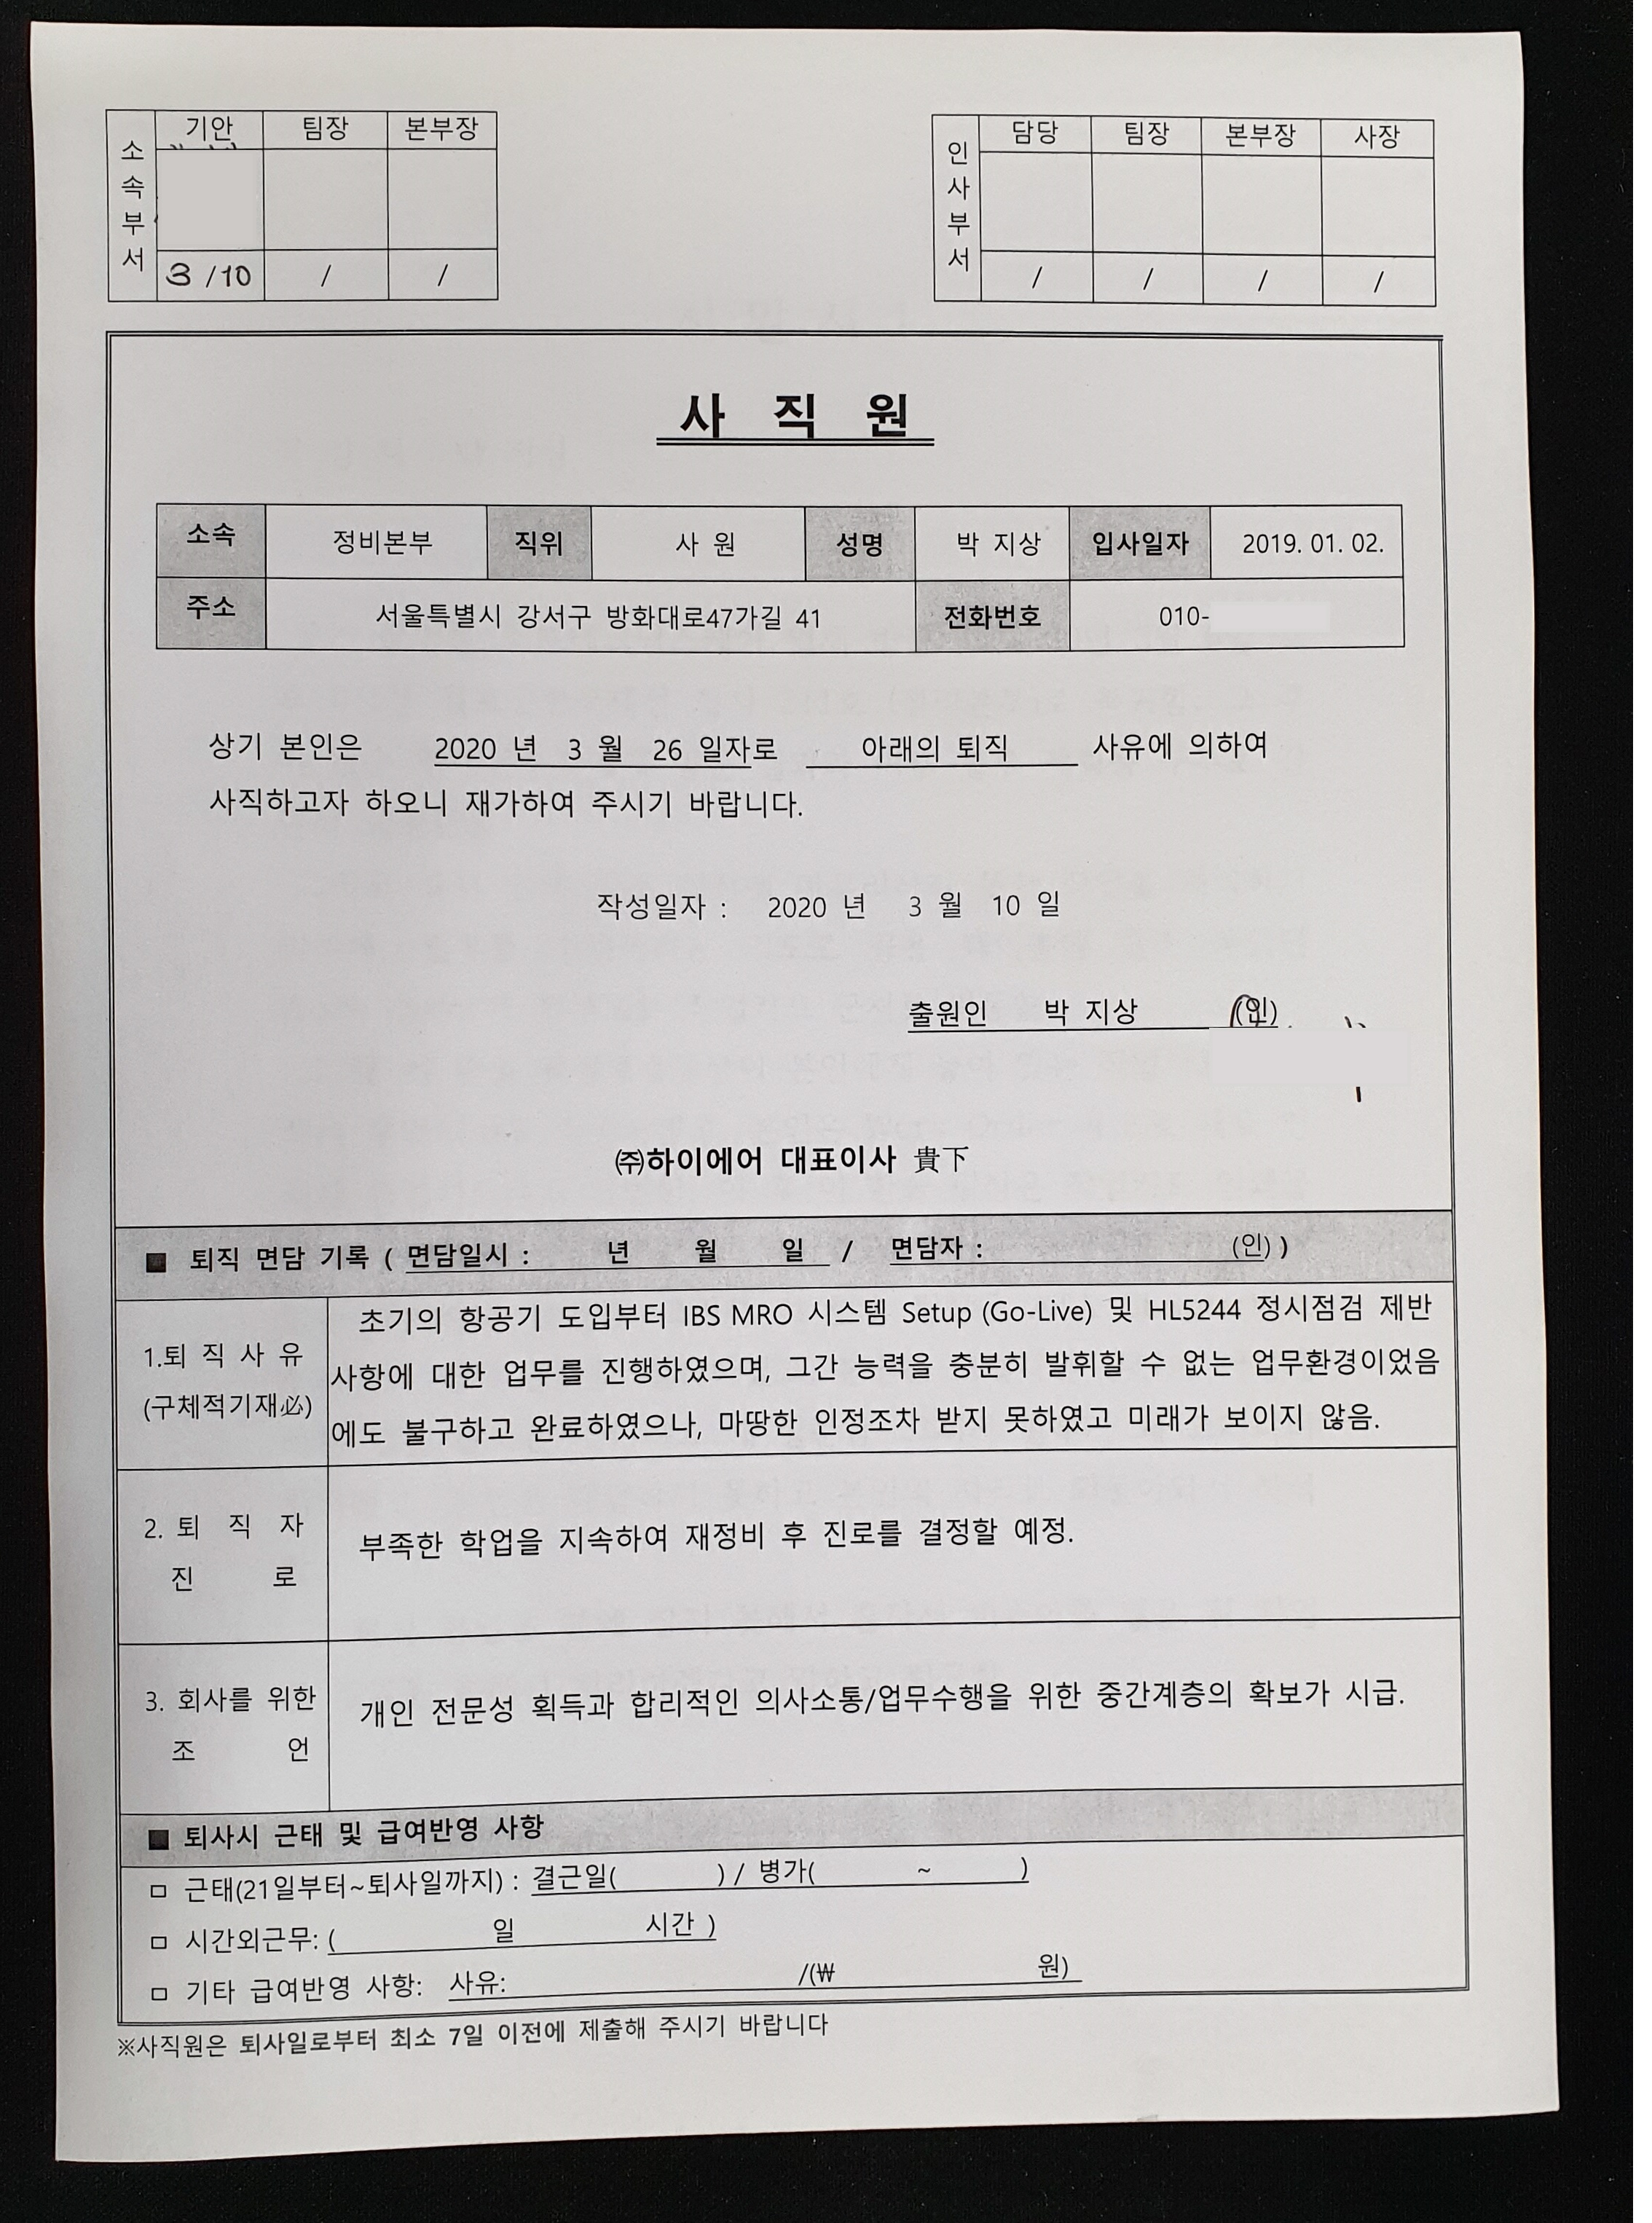 소속부서 기안 팀장 본부장
3/10 / /
인사부서 담당 팀장 본부장 사장
/ / / /
사 직 원
소속 정비본부 직위 사 원 성명 박 지상 입사일자 2019. 01. 02.
주소 서울특별시 강서구 방화대로47가길 41 전화번호 010-
상기 본인은 2020 년 3 월 26 일자로 아래의 퇴직 사유에 의하여
사직하고자 하오니 재가하여 주시기 바랍니다.
작성일자 : 2020 년 3 월 10 일
출원인 박 지상 (인)
㈜하이에어 대표이사 貴下
■ 퇴직 면담 기록 ( 면담일시 : 년 월 일 / 면담자 : (인) )
1.퇴 직 사 유
(구체적기재必)
초기의 항공기 도입부터 IBS MRO 시스템 Setup (Go-Live) 및 HL5244 정시점검 제반
사항에 대한 업무를 진행하였으며, 그간 능력을 충분히 발휘할 수 없는 업무환경이었음
에도 불구하고 완료하였으나, 마땅한 인정조차 받지 못하였고 미래가 보이지 않음.
2. 퇴 직 자
진 로
부족한 학업을 지속하여 재정비 후 진로를 결정할 예정.
3. 회사를 위한
조 언
개인 전문성 획득과 합리적인 의사소통/업무수행을 위한 중간계층의 확보가 시급.
■ 퇴사시 근태 및 급여반영 사항
□ 근태(21일부터~퇴사일까지) : 결근일( ) / 병가( ~ )
□ 시간외근무: ( 일 시간 )
□ 기타 급여반영 사항: 사유: /(₩ 원)
※사직원은 퇴사일로부터 최소 7일 이전에 제출해 주시기 바랍니다